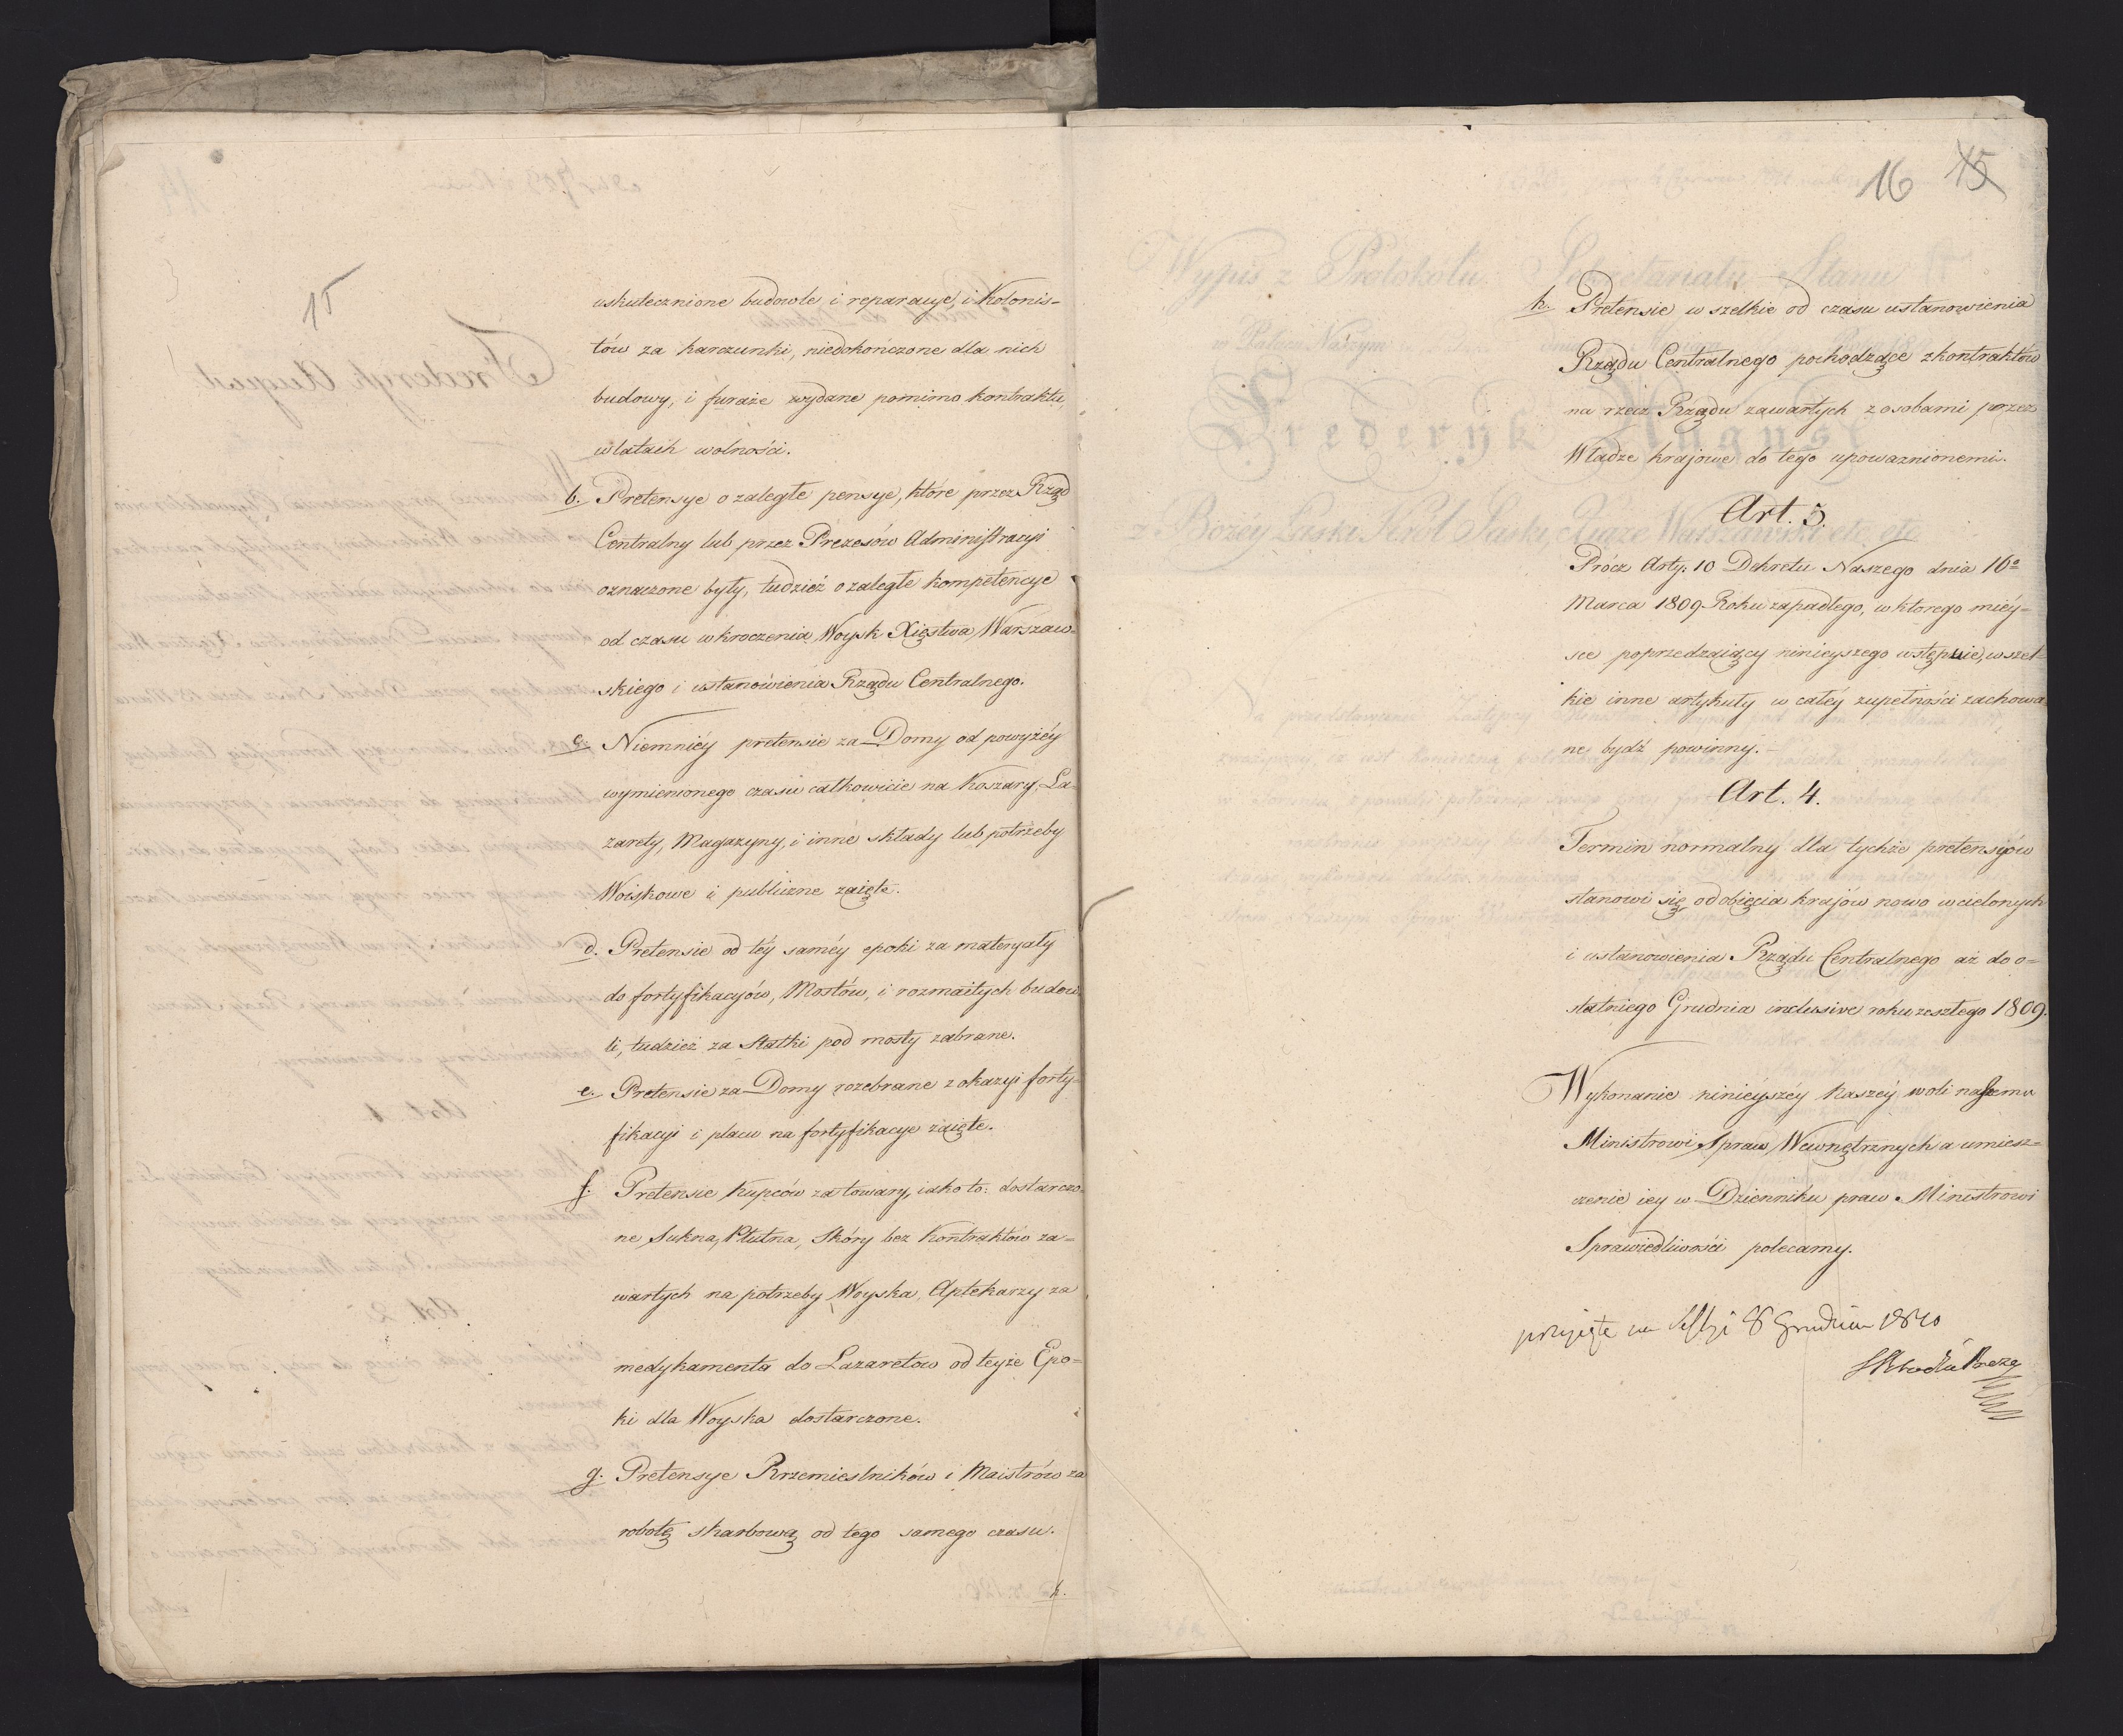 15
uskutecznione budowle i reparacye, i Kolonis-
tów za karczunki, niedokończone dla nich
budowy, i furaże wydane pomimo kontraktu
w latach wolności.
b. Pretensye o zaległe pensye, które przez Rząd
Centralny lub przez Prezesów Administracyi
oznaczone były, tudzież o zaległe kompetencye
od czasu wkroczenia Woysk Xięstwa Warszaw-
skiego i ustanowienia Rządu Centralnego.
c. Niemniéy pretensie za Domy od powyżéy
wymienionego czasu całkowicie na Koszary, La-
zarety, Magazyny, i inne składy lub potrzeby
Woiskowe i publiczne zaięte.
d. Pretensie od téy saméy epoki za materyały
do fortyfikacyów, Mostów, i rozmaitych budow-
li, tudzież za Statki pod mosty zabrane.
e. Pretensie za Domy rozebrane z okazyi forty-
fikacyi i placu na fortyfikacye zaięte.
f. Pretensie Kupców za towary, iako to: dostarczo-
ne Sukna, Płutna, Skóry bez Kontraktów za-
wartych na potrzeby Woyska, Aptekarzy za
medykamenta do Lazaretow od teyże Epo-
ki dla Woyska dostarczone.
g. Pretensye Rzemieslników i Maistrów za
robotę skarbową od tego samego czasu.
h.
16 15
h. Pretensie wszelkie od czasu ustanowienia
Rządu Centralnego pochodzące z kontraktów
na rzecz Rządu zawartych z osobami przez
Władze krajowe do tego upoważnionemi.
Art. 3.
Prócz Arty: 10 Dekretu Naszego dnia 16º
Marca 1809. Roku zapadłego, w ktorego miéy-
sce poprzedzaiący ninieyszego wstępuie, wszel-
kie inne artykuły w całéy zupełności zachowa
ne bydź powinny. –
Art. 4.
Termin normalny dla tychże pretensyów
stanowi się od obięcia krajów nowo wcielonych
i ustanowienia Rządu Centralnego aż do o-
statniego Grudnia inclusive roku zeszłego 1809.
Wykonanie ninieyszéy Naszéy woli naszemu
Ministrowi Spraw Wewnętrznych a umiesz-
czenie iey w Dzienniku praw Ministrowi
Sprawiedliwości polecamy.
przyięte na Sessyi 8 Grudnia 1810